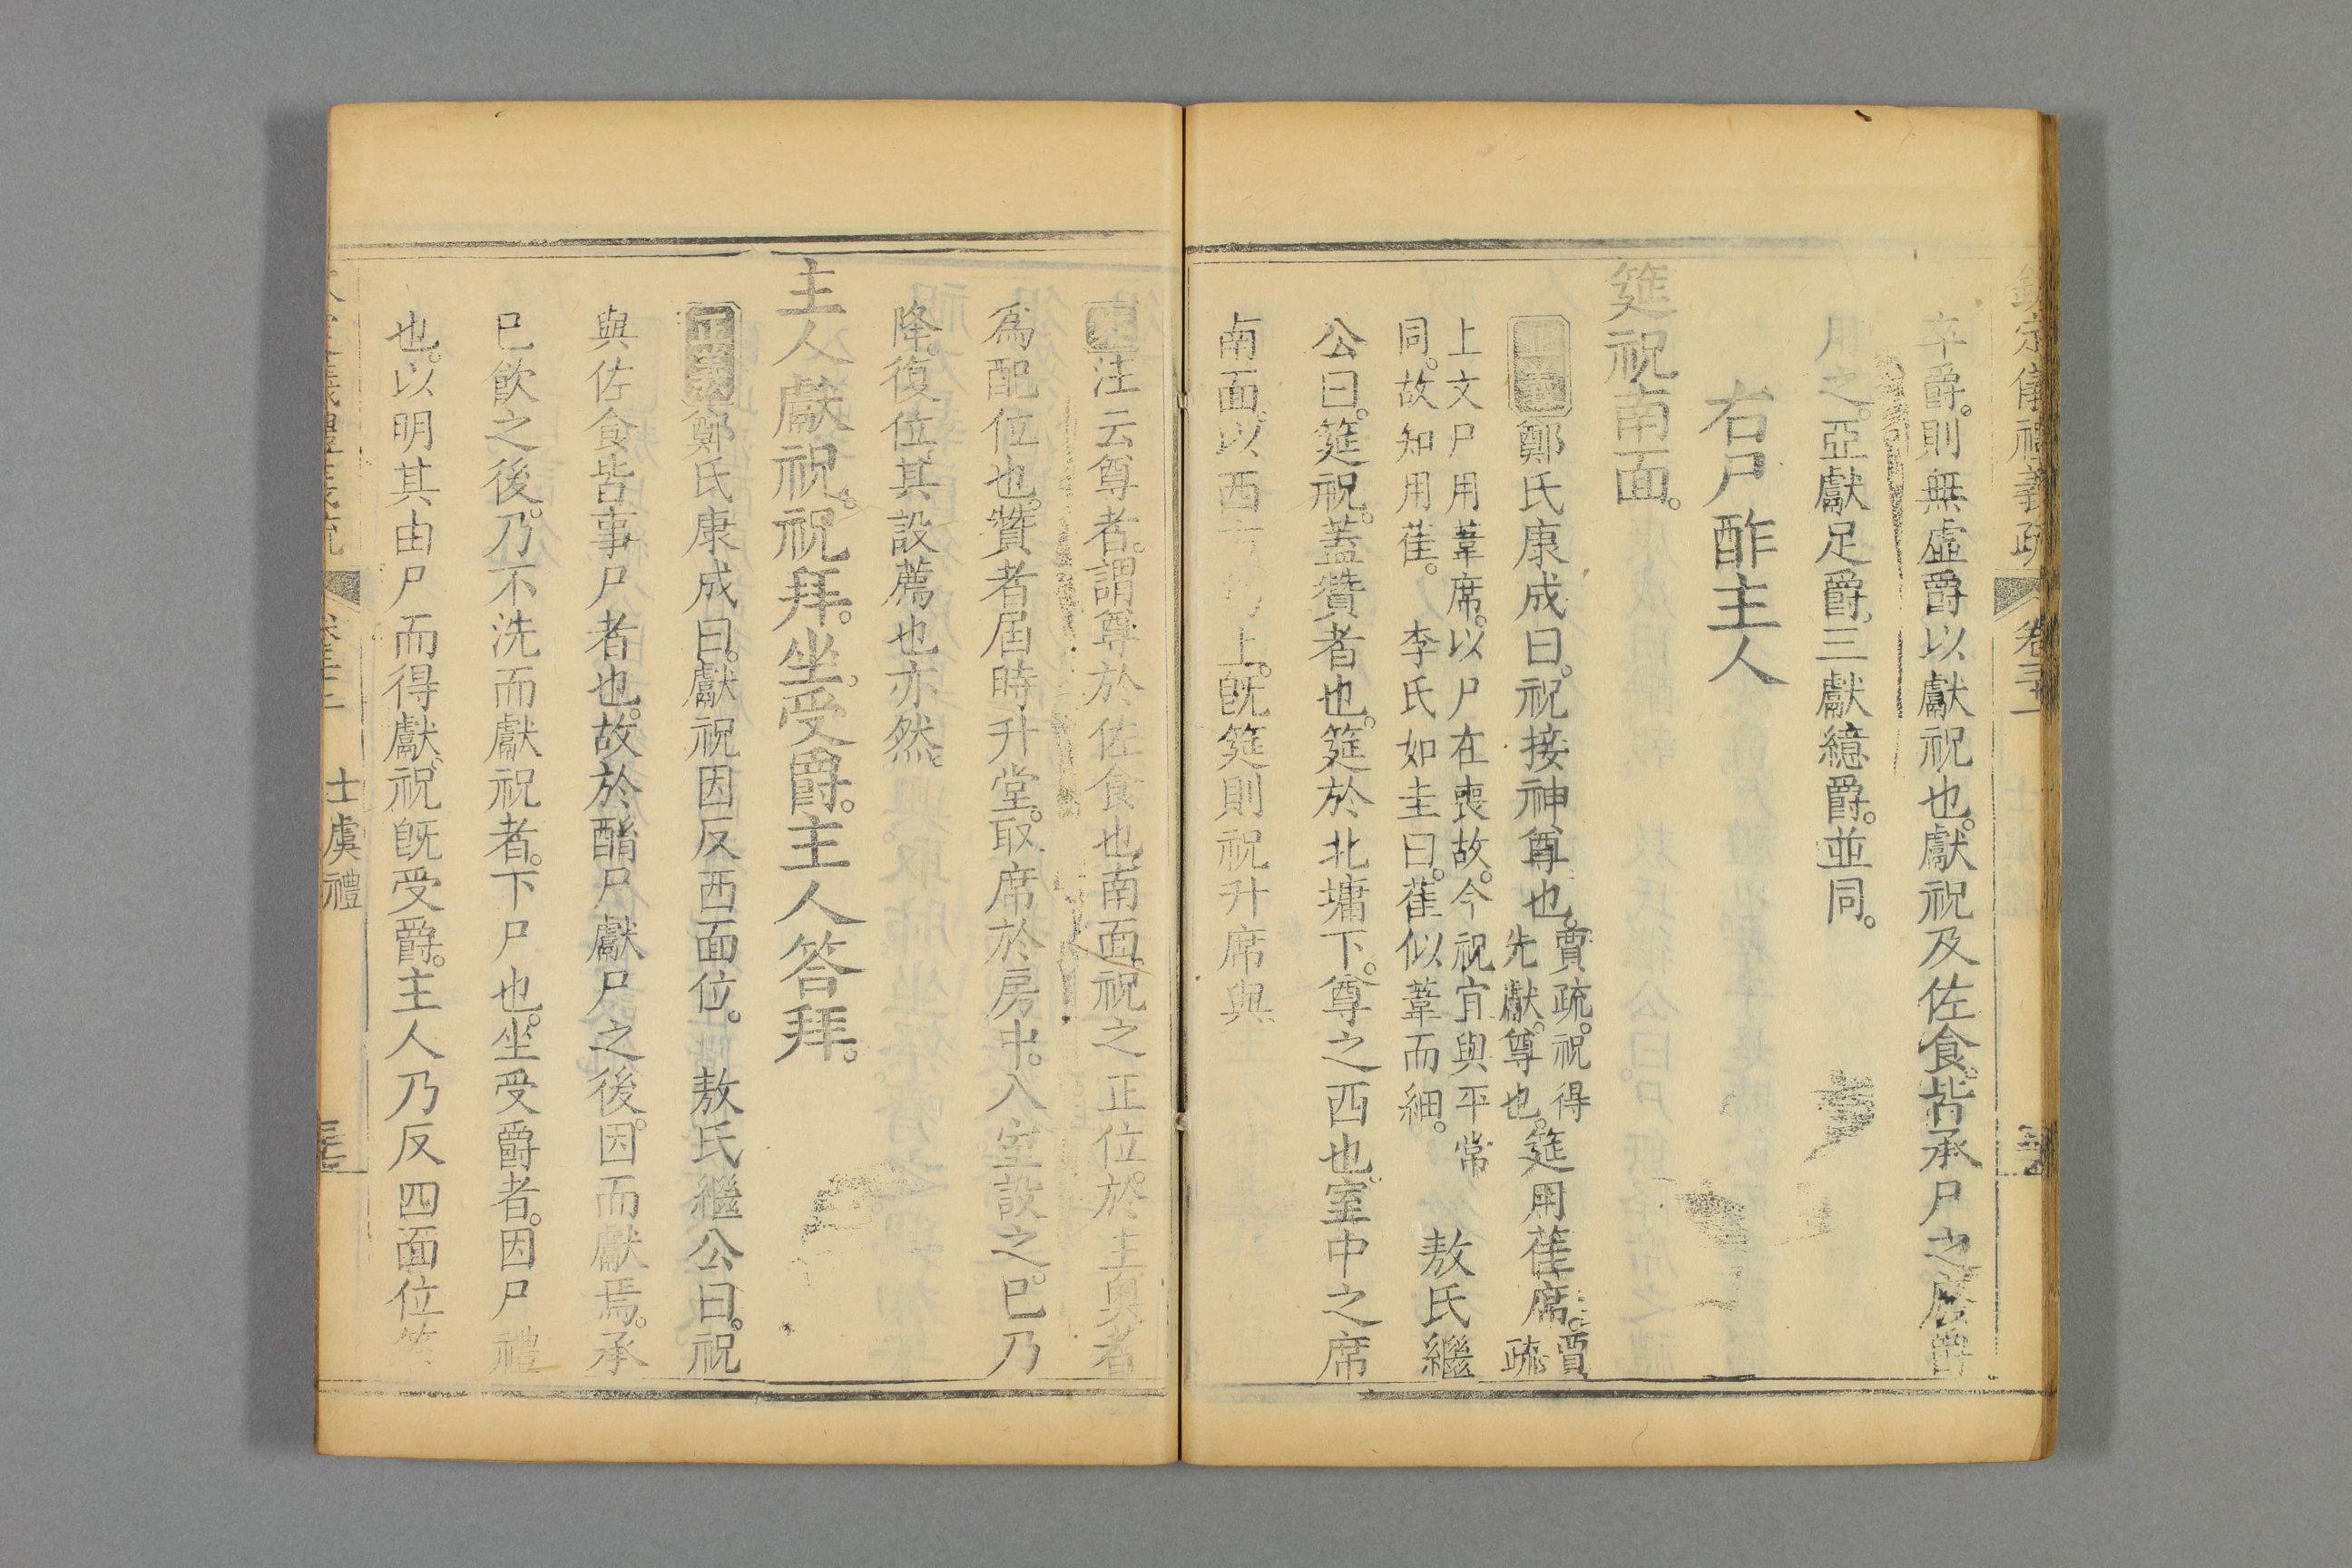 欽定儀禮義疏 卷三十二
卒爵。則無虛爵以獻祝也。獻祝及佐食。皆承尸之
用之。亞獻足爵。三獻繶爵。並同。
右尸酢主人
筵祝南面。
正義 鄭氏康成曰。祝接神尊也。賈疏。祝得先獻。尊也。筵用萑席。賈疏
上文尸用葦席。以尸在喪故。今祝宜與平常同。故知用萑。 李氏如圭曰。萑似葦而細。 敖氏繼
公曰。筵祝。蓋贊者也。筵於北墉下。尊之西也。室中之席
南面。以西 上。旣筵則祝升席與
注云尊者。謂尊於佐食也。南面。祝之正位。於主奧者
為配位也。贊者屆時升堂。取席於房中。入室設之。已乃
降。復位。其設薦也亦然。
主人獻祝。祝拜。坐受爵。主人答拜。
正義 鄭氏康成曰。獻祝因反西面位。 敖氏繼公曰。祝
與佐食皆事尸者也。故於酳尸獻尸之後。因而獻焉。承
已飲之後。乃不洗而獻祝者。下尸也。坐受爵者。因尸禮
也。以明其由尸而得獻。祝旣受爵。主人乃反四面位
士虞禮